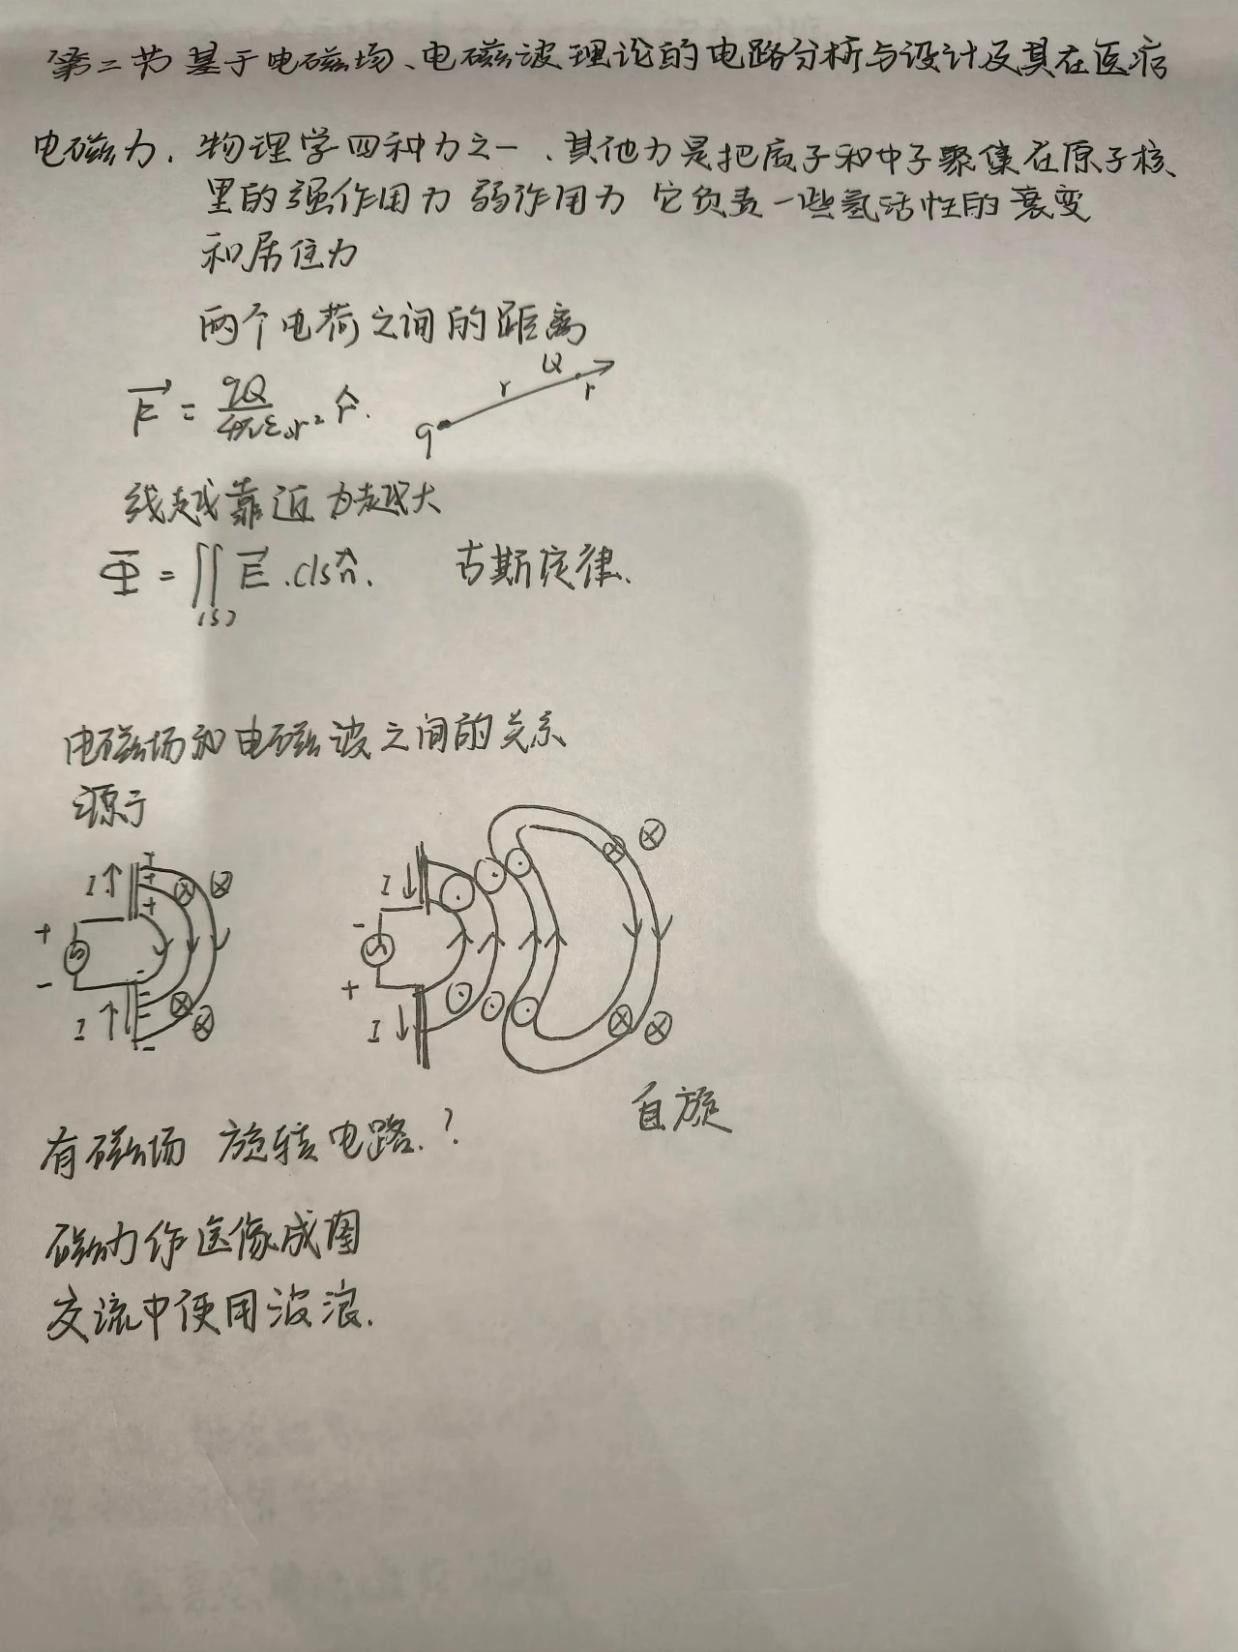 第二节 基于电磁场、电磁波理论的电路分析与设计及其在医疗
电磁力. 物理学四种力之一、其他力是把质子和中子聚集在原子核
里的强作用力 弱作用力 它负责一些氢活性的衰变
和居住力
两个电荷之间的距离
F = qQ / 4πε₀r² r̂.
Q
r
r
q
线越靠近 力越大
Φ = ∬(S) E . ds n̂. 古斯定律.
电磁场和电磁波之间的关系
源于
I + + +
+
-
I - - - -
I
-
+
I
自旋
有磁场 旋转电路.?
磁力作医像成图
交流中使用波浪.